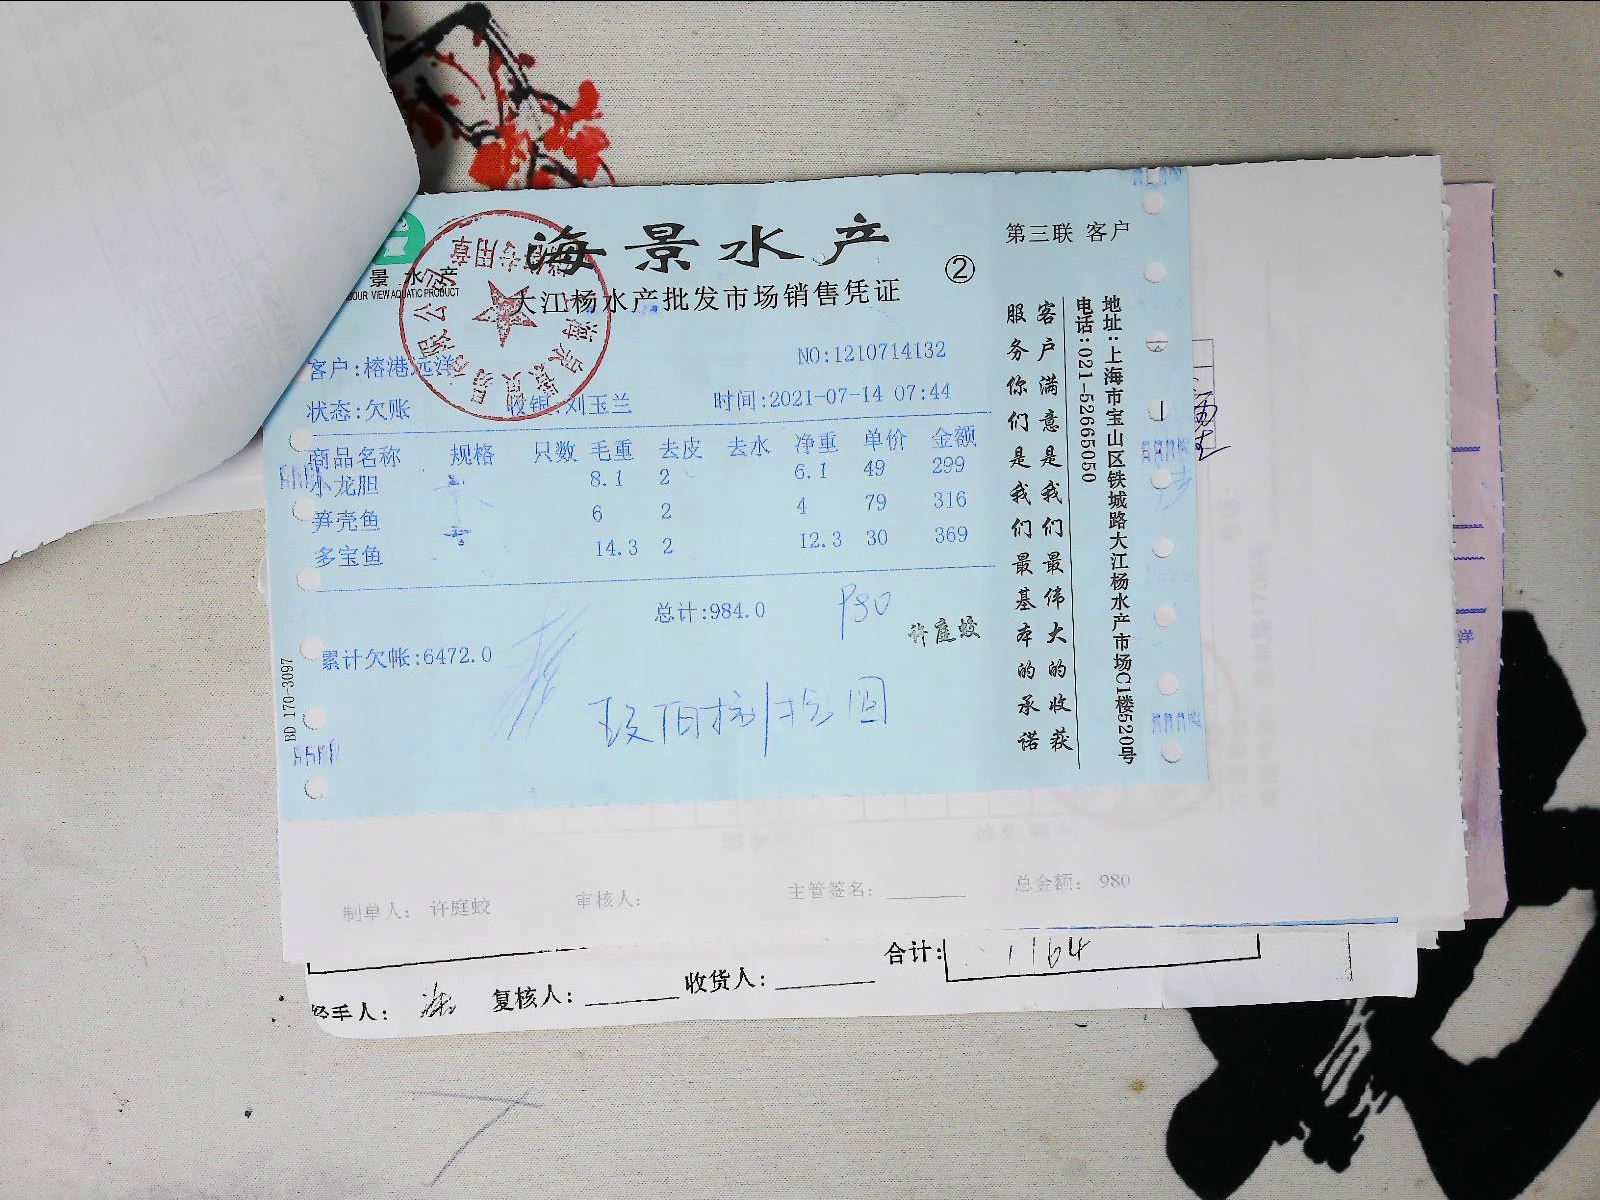 海景水产
第三联 客户
②
景水产
OUR VIEW AQUATIC PRODUCT
大江杨水产批发市场销售凭证
客户:榕港远洋
NO:1210714132
状态:欠账 收银:刘玉兰 时间:2021-07-14 07:44
商品名称 规格 只数 毛重 去皮 去水 净重 单价 金额
小龙胆 8.1 2 6.1 49 299
笋壳鱼 6 2 4 79 316
多宝鱼 14.3 2 12.3 30 369
总计:984.0
980
许庭蛟
累计欠帐:6472.0
BD 170-3097
客户满意是我们最伟大的收获
服务你们是我们最基本的承诺
地址:上海市宝山区铁城路大江杨水产市场C1楼520号
电话:021-52665050
制单人: 许庭蛟 审核人: 主管签名: 总金额: 980
合计: 1164
经手人: 复核人: 收货人:
洋